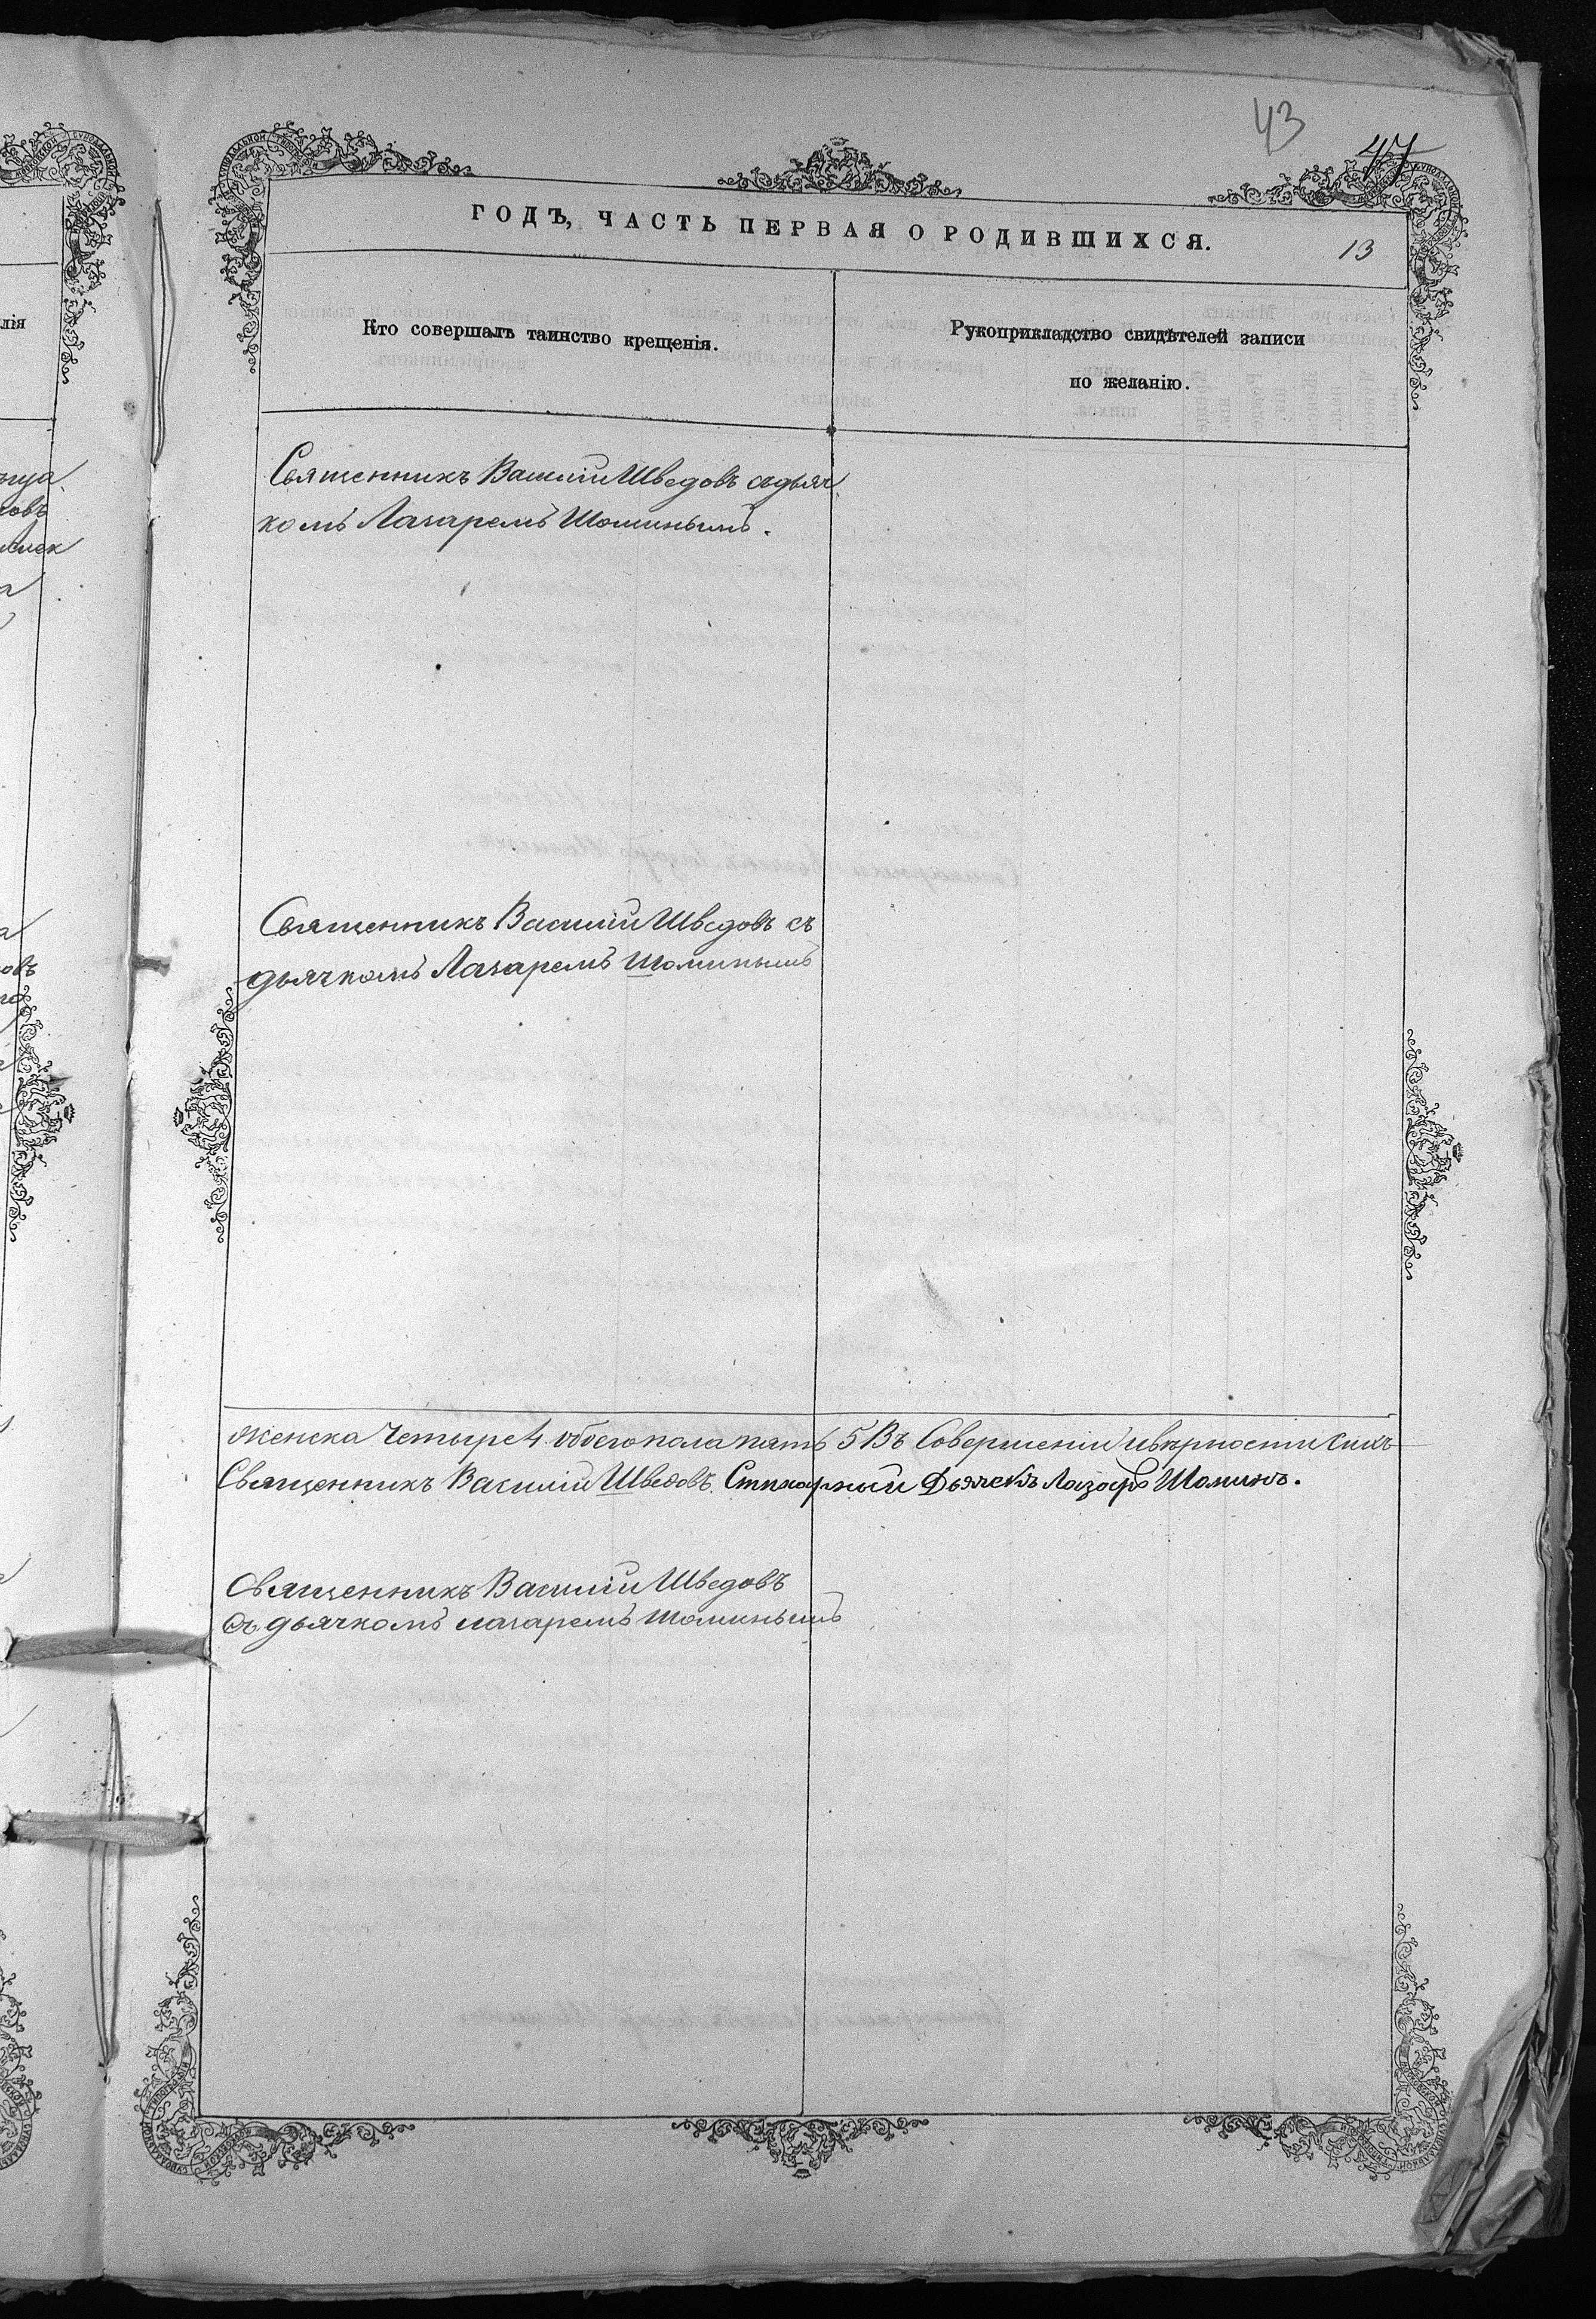 43
47
ГОДЪ, ЧАСТЬ ПЕРВАЯ О РОДИВШИХСЯ.
13
лія
Кто совершалъ таинство крещенія.
Рукоприкладство свидѣтелей записи
по желанію.
Священникъ Василій Шведовъ съ дьяч
комъ Лазаремъ Шоминымъ.
Священникъ Василій Шведовъ съ
дьячкомъ Лазаремъ Шоминымъ
женска четыре 4. обоего пола пять 5 Въ Совершеніи и вѣрности сихъ
Священникъ Василій Шведовъ. Стихарный Дьячекъ Лазарь Шоминъ.
Священникъ Василій Шведовъ
съ дьячкомъ лазаремъ Шоминымъ